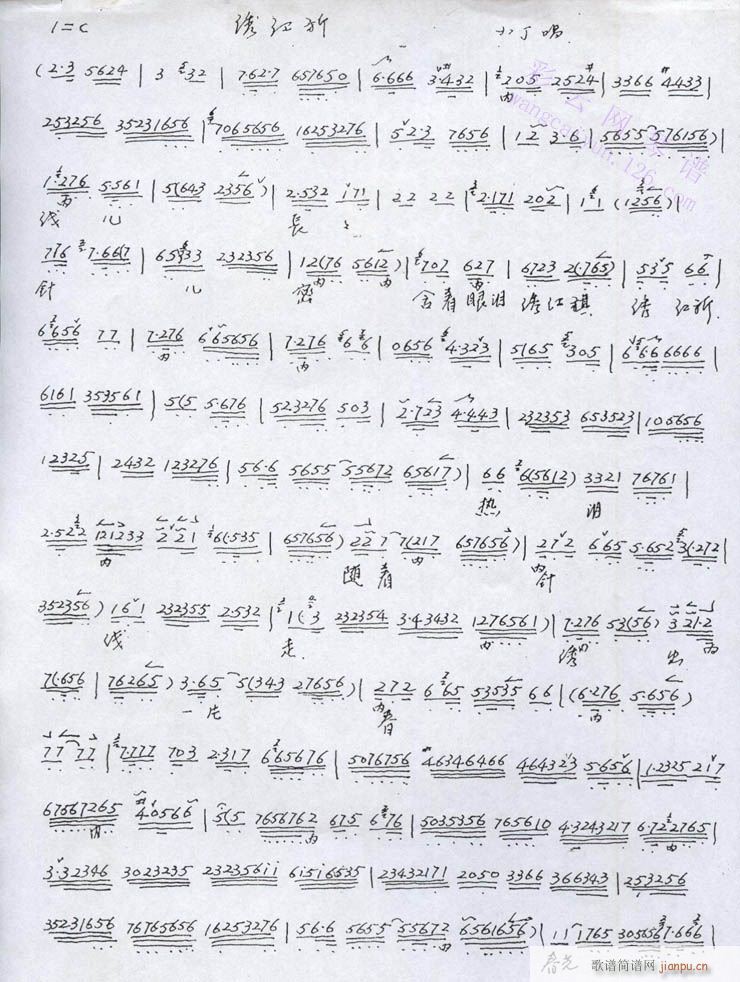 1=C 绣红祈
(2·3 5624 | 3 32 | 7·62·7 657650 | 6·666 3·432 | 205 2524 | 3366 4433 |
253256 35231656 | 7065656 16253276 | 5 2·3 7656 | 12 3·6 | 5655 576156) |
1·276 5·561 | 5(643 2356) | 2·532 i71 | 22 22 | 2·171 202 | 1 1 (1256) |
线 儿 長
716 7·667 | 65633 232356 | 12(76 5612) | 707 627 | 6723 2(765) | 535 66 |
针 儿 密 含着眼泪 绣红旗 绣 红祈
6656 77 | 7·276 665656 | 7·276 6 6 | 0656 4·323 | 5165 305 | 66·66666 |
6161 353561 | 5(5 5·676 | 523276 503 | 2·723 4·443 | 232353 653523 | 105656
12325 | 2432 123276 | 56·6 5655 55672 65617) | 66 6(5612) 3321 76761 |
热 泪
2·522 121233 2 21 6(535 | 657656) 227 7(217 657656) | 272 665 5·652 3(272 |
随 着 针
352356) 161 232355 2·532 | 1(3 232354 3·43432 1276561) | 7·276 53(56) 321·2
线 走 绣 出
7(·656 | 76265) 3·65 5(343 27656) | 272 665 53535 66 | (6·276 5·656)
一片 春
77 77 | 7·777 703 2·317 665676 | 5076756 46346466 464323 5·656 | 1·2325 217
67567265 40566 | 5(5 7656762 675 676 | 5035356 765610 4·3243217 6·722765 |
3·32346 3023235 23235611 61516535 | 23432171 2050 3366 366343 | 253256
35231656 76765656 16253276 | 56·6 5655 55672 6561656) | 11 1765 305656 7·666 |
春光 歌谱简谱网 jianpu.cn
彩云网
wangcaiyun.126.com